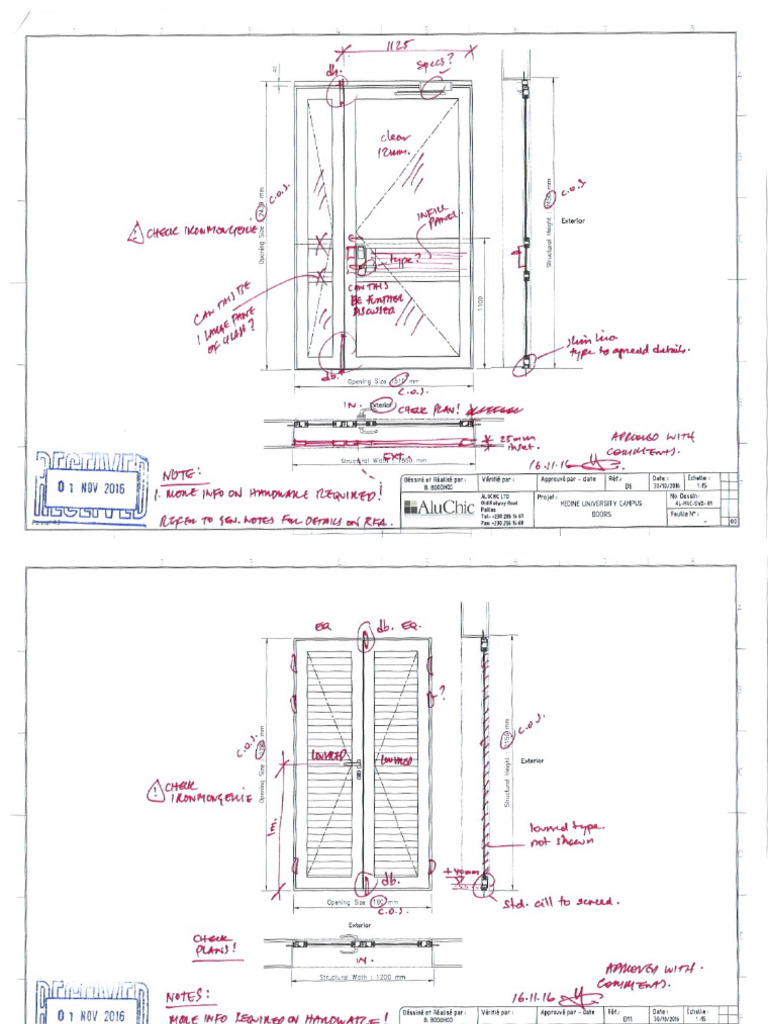 1125
specs?
db.
clear
12mm.
Opening Size 2430 mm
c.o.s.
Structural Height
mm
c.o.s.
Exterior
CHECK IRONMONGERIE
INFILL
PANEL.
type?
CAN THIS
BE FURTHER
DISCUSSED
CAN THIS BE
1 LARGE PANE
OF GLASS?
1100
slim line
type to agreed details.
db.
Opening Size 1510 mm
c.o.s.
IN.
Exterior
CHECK PLAN!
25mm
inset.
EXT.
Structural Width
mm
APPROVED WITH
COMMENTS.
16.11.16
RECEIVED
01 NOV 2016
NOTE:
1. MORE INFO ON HARDWARE REQUIRED!
REFER TO GEN. NOTES FOR DETAILS ON RFA.
Déssiné et Réalisé par :
B. BOODHOO
Vérifié par :
Approuvé par - Date
Réf.:
D6
Date :
30/10/2016
Échelle :
1:15
AluChic
ALUCHIC LTD
Old Railway Road
Pailles
Tel: +230 286 16 61
Fax: +230 286 16 60
Projet :
MEDINE UNIVERSITY CAMPUS
DOORS
No. Dessin:
Feuille N° :
-
00
EQ
db.
EQ.
?
c.o.s.
Opening Size
mm
LOUVRED
LOUVRED
Structural Height
mm
c.o.s.
Exterior
CHECK
IRONMONGERIE
1m.
louvred type.
not shown
+40mm
db.
std. cill to screed.
Opening Size 1180 mm
c.o.s.
Exterior
CHECK
PLANS!
IN.
Structural Width : 1200 mm
APPROVED WITH.
COMMENTS.
16.11.16
RECEIVED
01 NOV 2016
NOTES:
MORE INFO REQUIRED ON HARDWARE!
Déssiné et Réalisé par :
B. BOODHOO
Vérifié par :
Approuvé par - Date
Réf.:
D11
Date :
30/10/2016
Échelle :
1:15